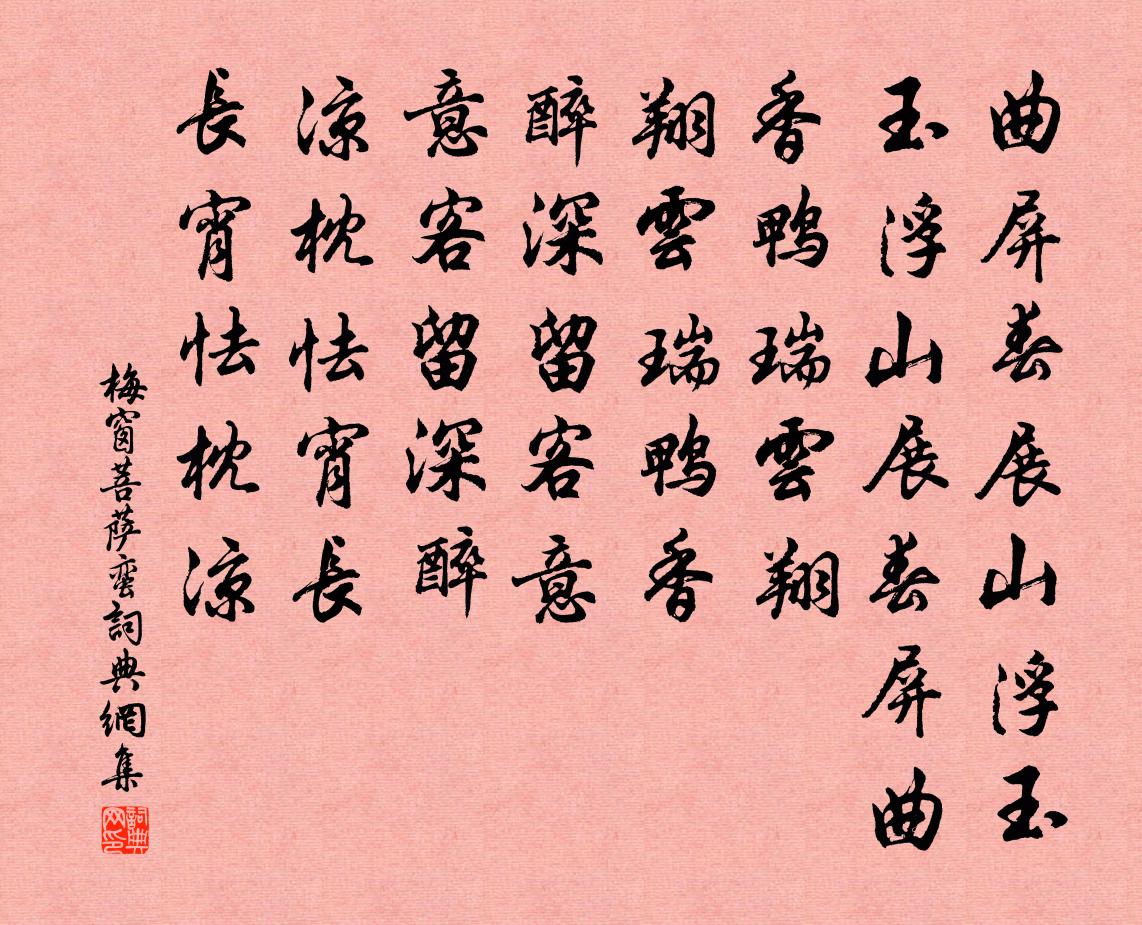 曲屏春展山浮玉
玉浮山展春屏曲
香鴨瑞雲翔
翔雲瑞鴨香
醉深留客意
意客留深醉
涼枕怯宵長
長宵怯枕涼
梅窗菩萨蛮詞典網集
詞典网印